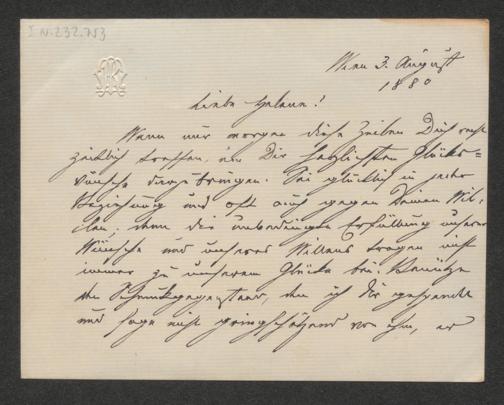 I.N. 232.753
Wien 3. August
1880
Liebe Helene!
Wenn nur morgen diese Zeilen Dich recht
zeitlich treffen, um Dir herzlichsten Glücks=
wünsche darzubringen. Sei glücklich in jeder
Beziehung und oft auch gegen Deinen Wil-
len, denn die unbedingte Erfüllung unserer
Wünsche und unseres Willens tragen nicht
immer zu unserem Glücke bei. Benütze
den Schmuckgegenstand, den ich Dir gesendet
und sage nicht geringschätzend von ihm, er